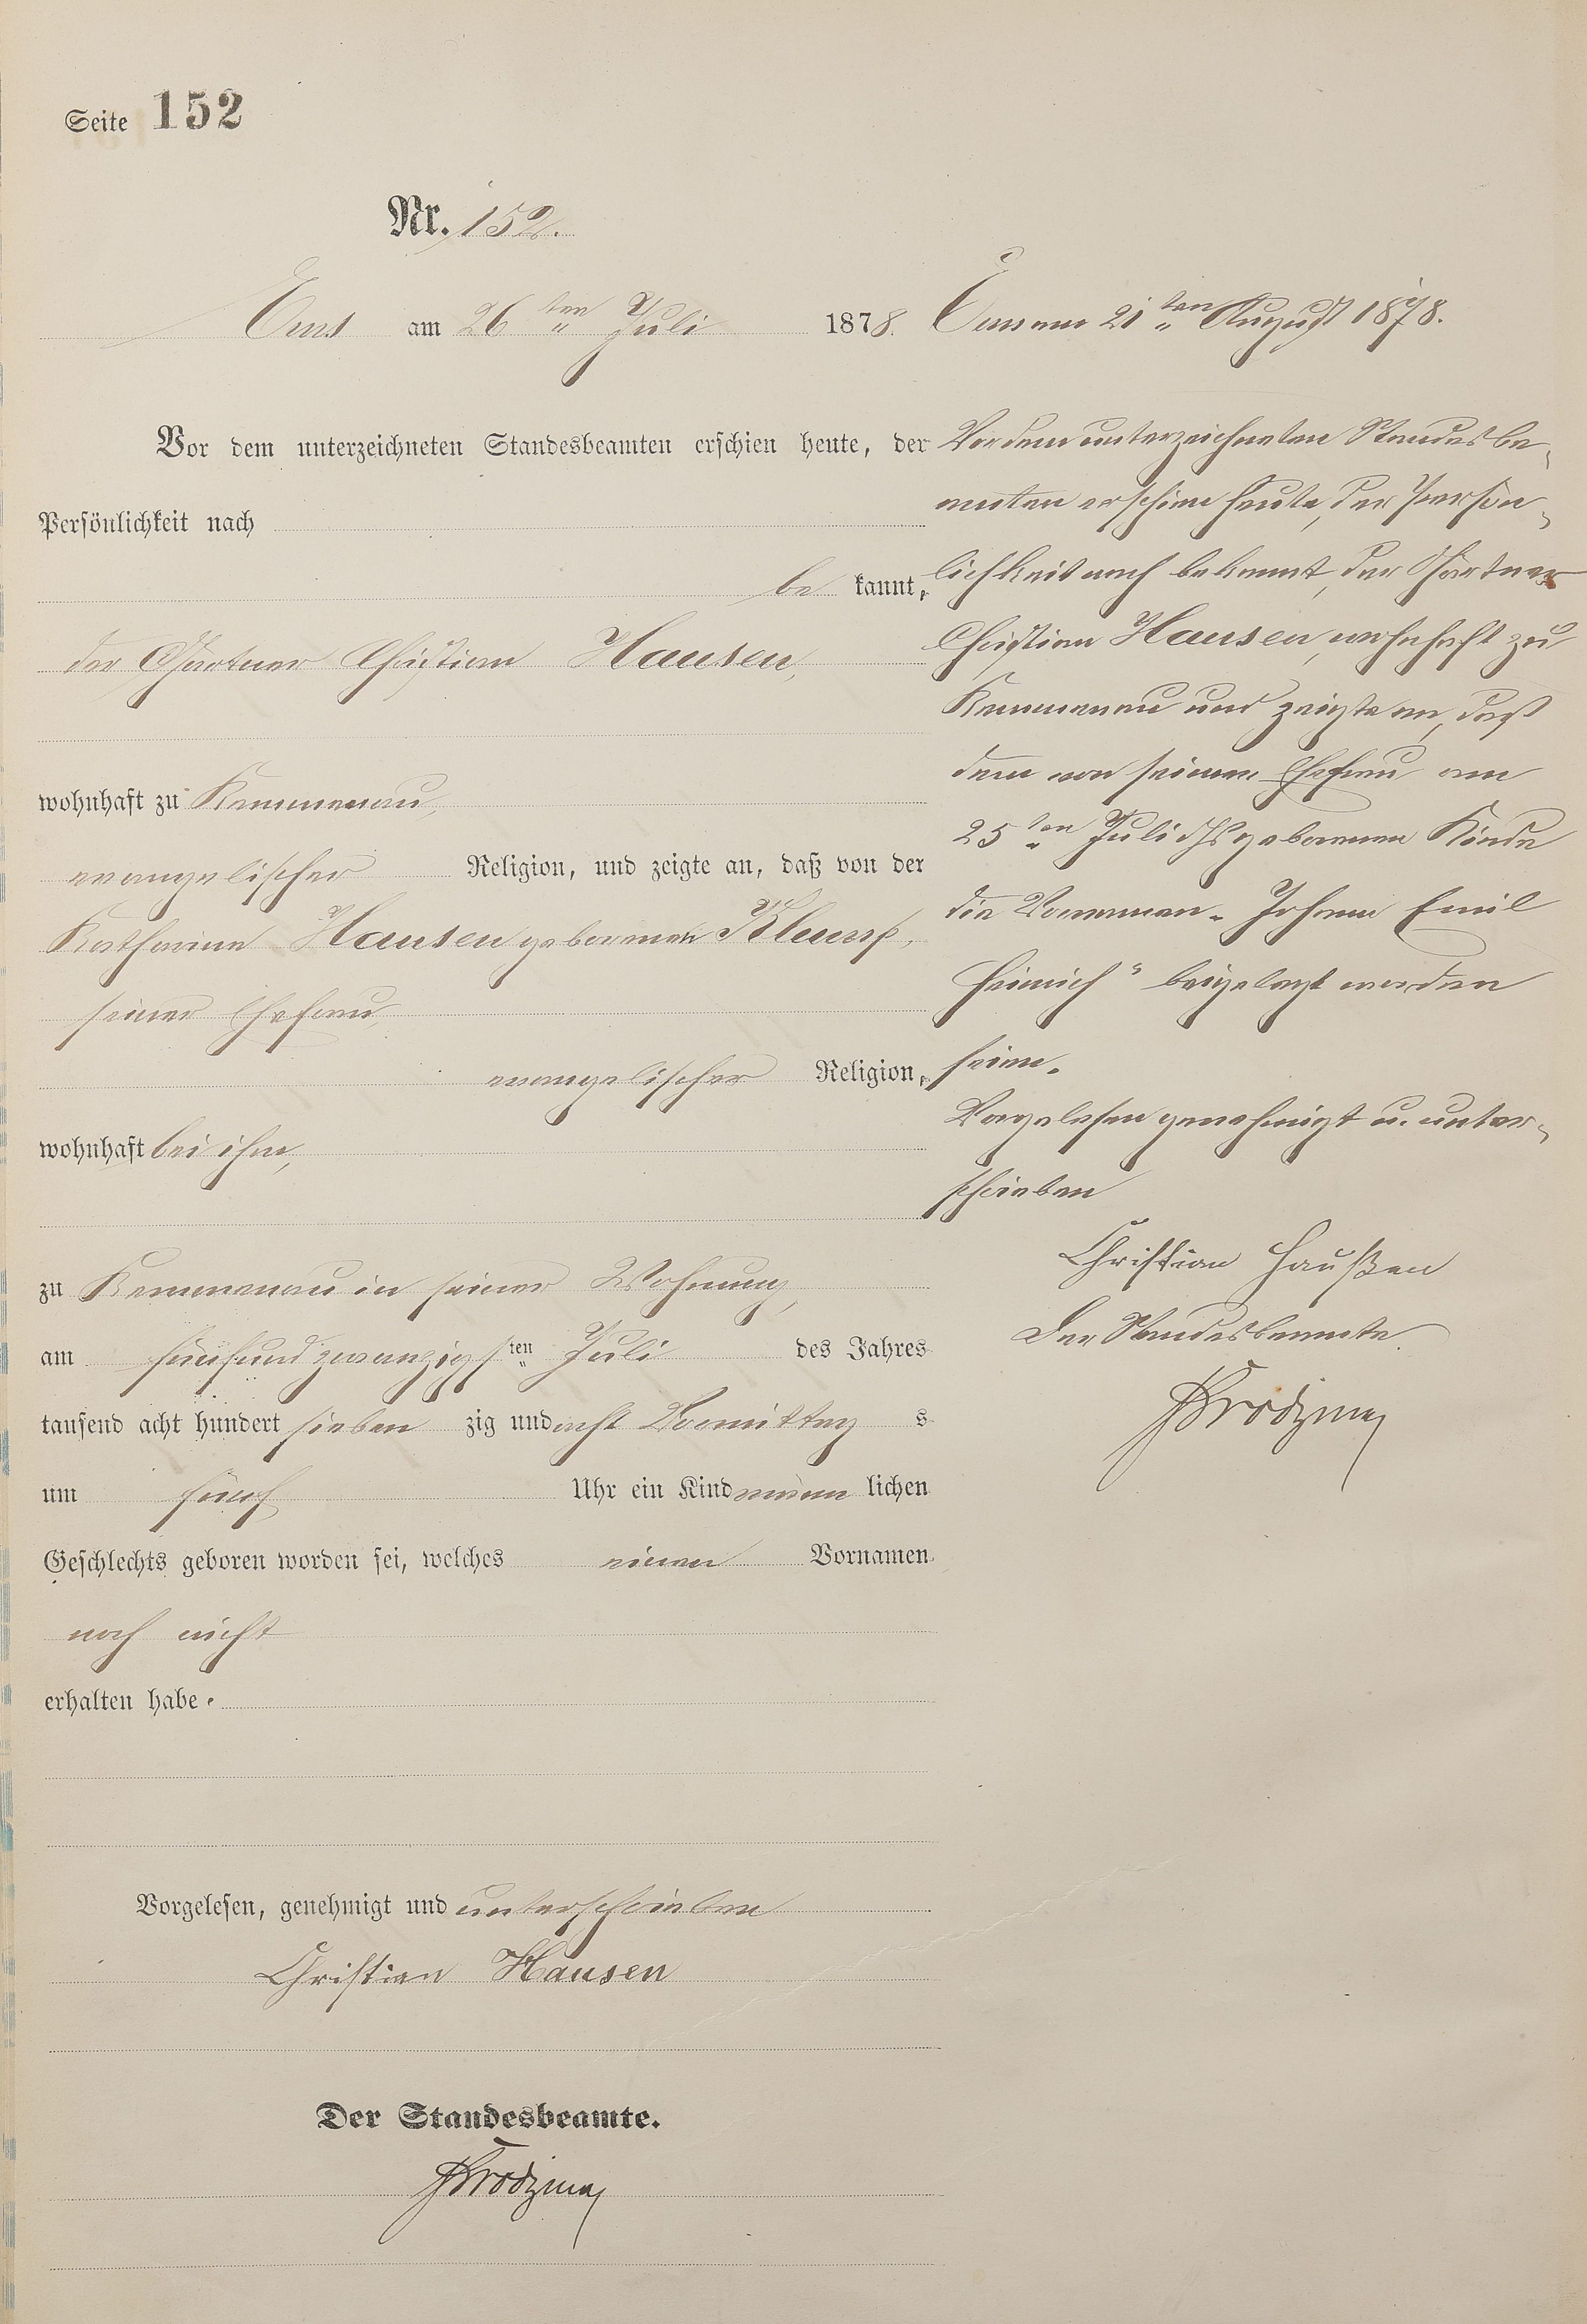 Seite 152
Nr. 152.
Ems am 26ten Juli 1878.
Vor dem unterzeichneten Standesbeamten erschien heute, der
Persönlichkeit nach
bekannt,
der Gärtner Christian Hausen,
wohnhaft zu Kemmenau,
evangelischer Religion, und zeigte an, daß von der
Katharina Hausen geborenen
seiner Ehefrau,
evangelischer Religion,
wohnhaft bei ihm,
zu Kemmenau in seiner Wohnung,
am fünfundzwanzigsten Juli des Jahres
tausend acht hundert siebenzig und acht Vormittags
um fünf Uhr ein Kind männlichen
Geschlechts geboren worden sei, welches einen Vornamen
noch nicht
erhalten habe.
Vorgelesen, genehmigt und unterschrieben
Christian Hausen
Der Standesbeamte.
Ems am 21ten August 1878.
Vor dem unterzeichneten Standesbe-
amten erschien heute, der Persön-
lichkeit nach bekannt, der Gärtner
Christian Hausen, wohnhaft zu
Kemmenau und zeigte an, daß
dem von seiner Ehefrau am
25ten Juli geborenen Kinde
die Vornamen „Johann Emil
Heinrich“ beigelegt worden
seien.
Vorgelesen genehmigt u. unter-
schrieben
Christian Haußen
Der Standesbeamte.